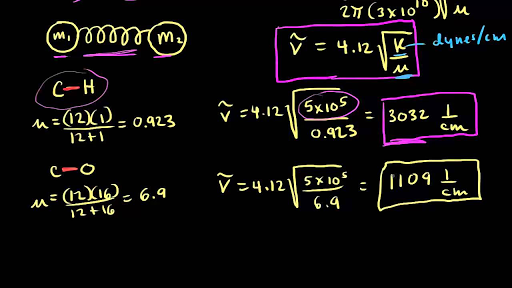 2π(3×10¹⁰)√μ
m₁ m₂
ṽ = 4.12 √(k/μ) - dynes/cm
C-H
μ = (12)(1)/12+1 = 0.923
ṽ = 4.12 √(5×10⁵/0.923) = 3032 1/cm
C-O
μ = (12)(16)/12+16 = 6.9
ṽ = 4.12 √(5×10⁵/6.9) = 1109 1/cm